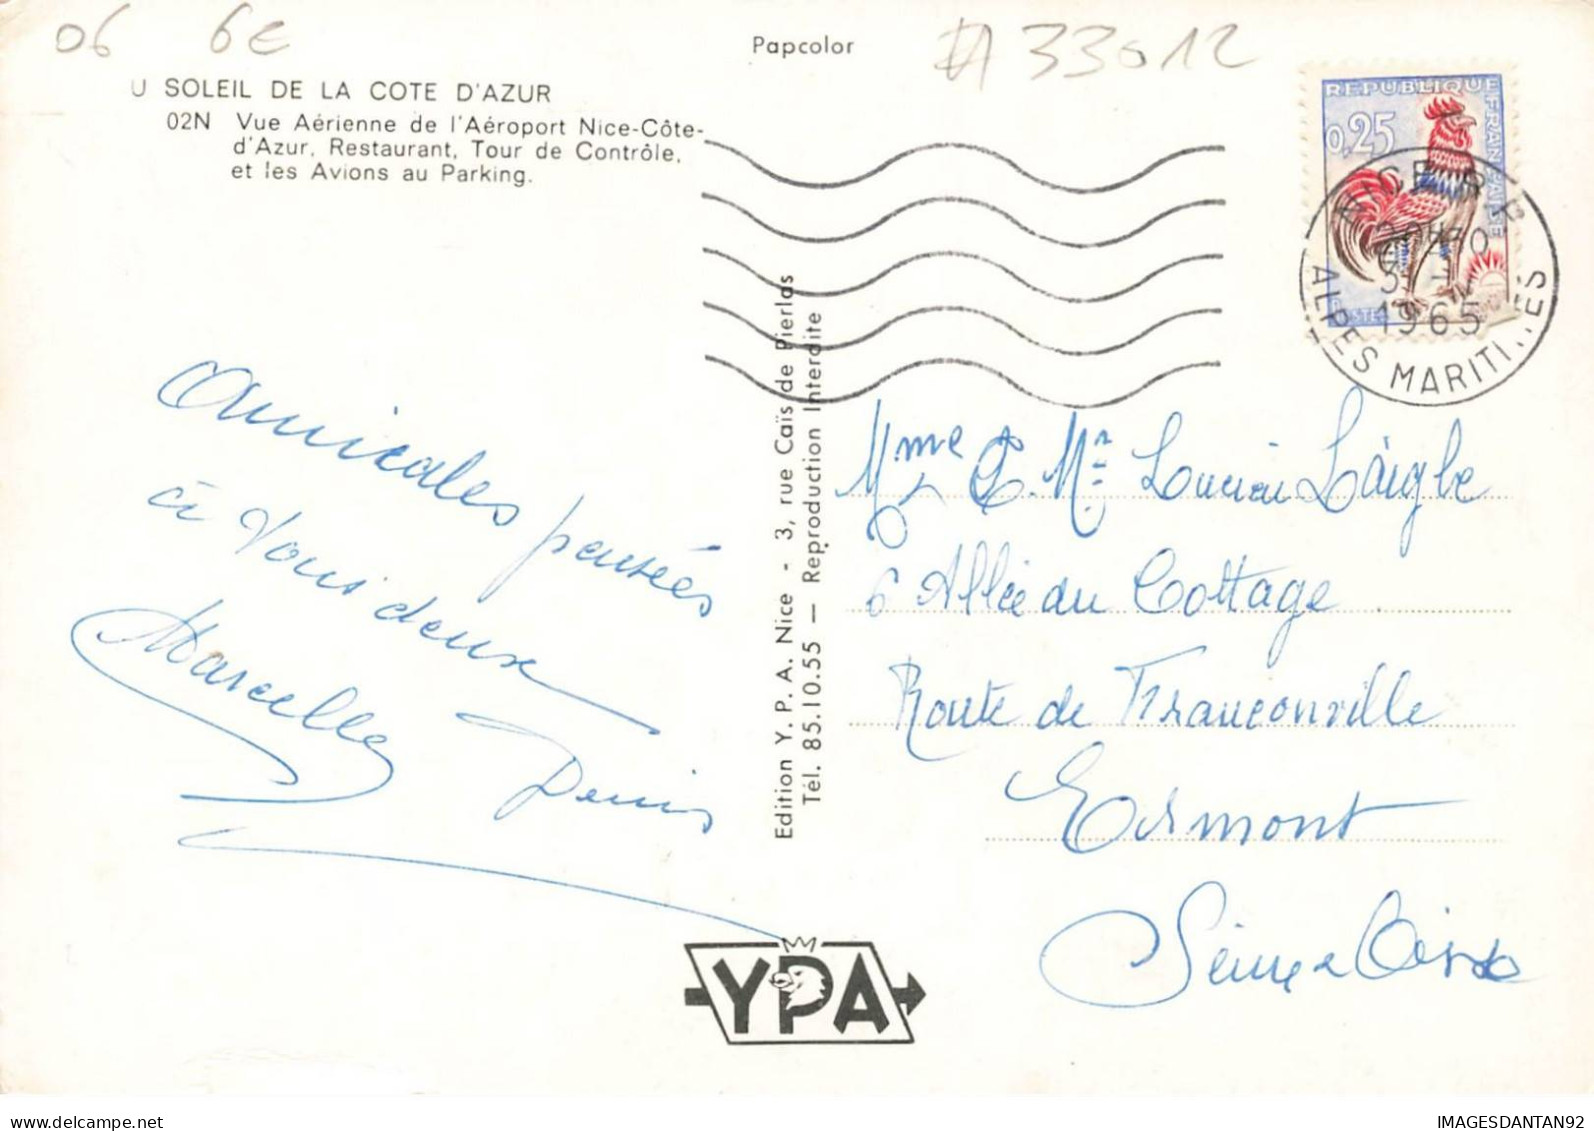 06 6€
Papcolor
#A33012
U SOLEIL DE LA COTE D'AZUR
02N Vue Aérienne de l'Aéroport Nice-Côte-
d'Azur, Restaurant, Tour de Contrôle,
et les Avions au Parking.
REPUBLIQUE FRANÇAISE
0,25
NICE R.P
1965
ALPES MARITIMES
Amicales pensées
à vous deux
Marcelle
Denis
Edition Y. P. A. Nice - 3, rue Caïs de Pierlas
Tél. 85.10.55 — Reproduction Interdite
Mme & Mr Lucien Laigle
6 Allée du Cottage
Route de Franconville
Ermont
Seine & Oise
YPA
IMAGESDANTAN92